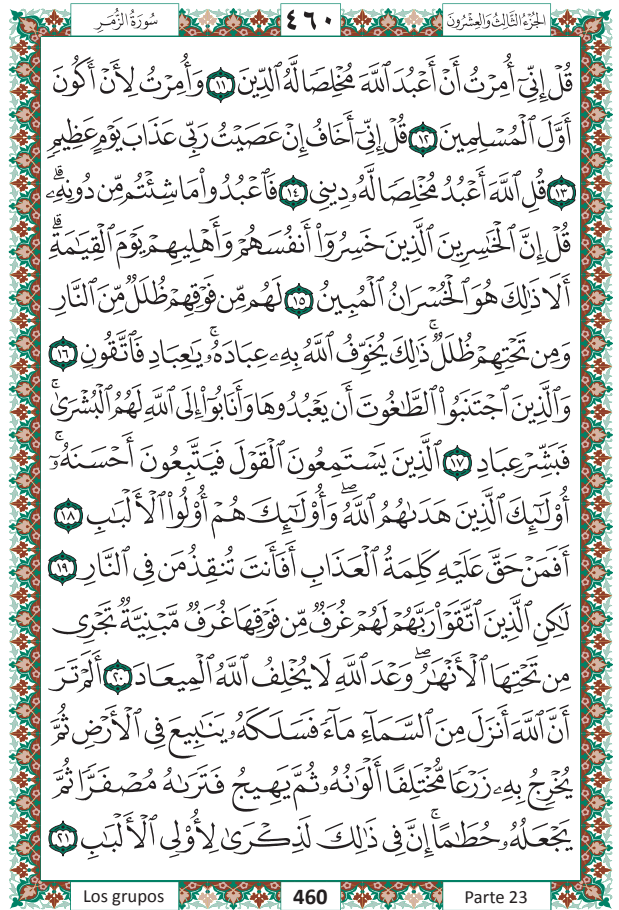 سُورَةُ الزُّمَرِ
٤٦٠
الجُزْءُ الثَّالِثُ وَالعِشْرُونَ
قُلْ إِنِّيٓ أُمِرْتُ أَنْ أَعْبُدَ ٱللَّهَ مُخْلِصًا لَّهُ ٱلدِّينَ ١١ وَأُمِرْتُ لِأَنْ أَكُونَ
أَوَّلَ ٱلْمُسْلِمِينَ ١٢ قُلْ إِنِّيٓ أَخَافُ إِنْ عَصَيْتُ رَبِّي عَذَابَ يَوْمٍ عَظِيمٍ
١٣ قُلِ ٱللَّهَ أَعْبُدُ مُخْلِصًا لَّهُۥ دِينِي ١٤ فَٱعْبُدُوا۟ مَا شِئْتُم مِّن دُونِهِۦۗ
قُلْ إِنَّ ٱلْخَٰسِرِينَ ٱلَّذِينَ خَسِرُوٓا۟ أَنفُسَهُمْ وَأَهْلِيهِمْ يَوْمَ ٱلْقِيَٰمَةِۗ
أَلَا ذَٰلِكَ هُوَ ٱلْخُسْرَانُ ٱلْمُبِينُ ١٥ لَهُم مِّن فَوْقِهِمْ ظُلَلٌ مِّنَ ٱلنَّارِ
وَمِن تَحْتِهِمْ ظُلَلٌۚ ذَٰلِكَ يُخَوِّفُ ٱللَّهُ بِهِۦ عِبَادَهُۥۚ يَٰعِبَادِ فَٱتَّقُونِ ١٦
وَٱلَّذِينَ ٱجْتَنَبُوا۟ ٱلطَّٰغُوتَ أَن يَعْبُدُوهَا وَأَنَابُوٓا۟ إِلَى ٱللَّهِ لَهُمُ ٱلْبُشْرَىٰۚ
فَبَشِّرْ عِبَادِ ١٧ ٱلَّذِينَ يَسْتَمِعُونَ ٱلْقَوْلَ فَيَتَّبِعُونَ أَحْسَنَهُۥٓۚ
أُو۟لَٰٓئِكَ ٱلَّذِينَ هَدَىٰهُمُ ٱللَّهُۖ وَأُو۟لَٰٓئِكَ هُمْ أُو۟لُوا۟ ٱلْأَلْبَٰبِ ١٨
أَفَمَنْ حَقَّ عَلَيْهِ كَلِمَةُ ٱلْعَذَابِ أَفَأَنتَ تُنقِذُ مَن فِي ٱلنَّارِ ١٩
لَٰكِنِ ٱلَّذِينَ ٱتَّقَوْا۟ رَبَّهُمْ لَهُمْ غُرَفٌ مِّن فَوْقِهَا غُرَفٌ مَّبْنِيَّةٌ تَجْرِي
مِن تَحْتِهَا ٱلْأَنْهَٰرُۖ وَعْدَ ٱللَّهِ لَا يُخْلِفُ ٱللَّهُ ٱلْمِيعَادَ ٢٠ أَلَمْ تَرَ
أَنَّ ٱللَّهَ أَنزَلَ مِنَ ٱلسَّمَآءِ مَآءً فَسَلَكَهُۥ يَنَٰبِيعَ فِي ٱلْأَرْضِ ثُمَّ
يُخْرِجُ بِهِۦ زَرْعًا مُّخْتَلِفًا أَلْوَٰنُهُۥ ثُمَّ يَهِيجُ فَتَرَىٰهُ مُصْفَرًّا ثُمَّ
يَجْعَلُهُۥ حُطَٰمًاۚ إِنَّ فِي ذَٰلِكَ لَذِكْرَىٰ لِأُو۟لِي ٱلْأَلْبَٰبِ ٢١
Los grupos
460
Parte 23